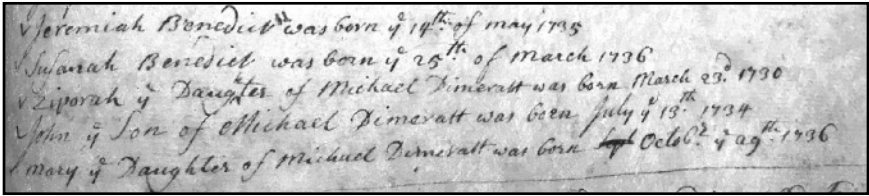 Jeremiah Benedict was born yͤ 14th. of may 1735
Susanah Benedict was born yͤ 25th. of March 1736
Ziporah yͤ Daugter of Michael Dimeratt was born March 23d. 1730
John yͤ Son of Michael Dimeratt was born July yͤ 13th. 1734
mary yͤ Daughter of Michael Dimeratt was born Octobr. yͤ 29th. 1736